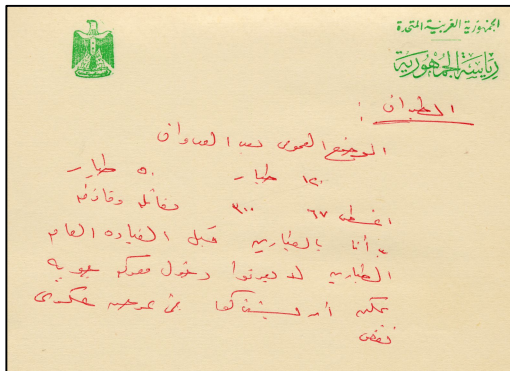 الجمهورية العربية المتحدة
رياسة الجمهورية
الطيران :
الوضع العمومى بعد العدوان
١٢٠ طيار ٥٠ طيار
اغسطس ٦٧ ٣٠٠ مقاتله وقاذفه
بالطيارين قبل القيادة العام
الطيارين لا يعرفوا دخول معركه جويه
يمكن أن يشتركوا فى عرض عسكرى
نقص